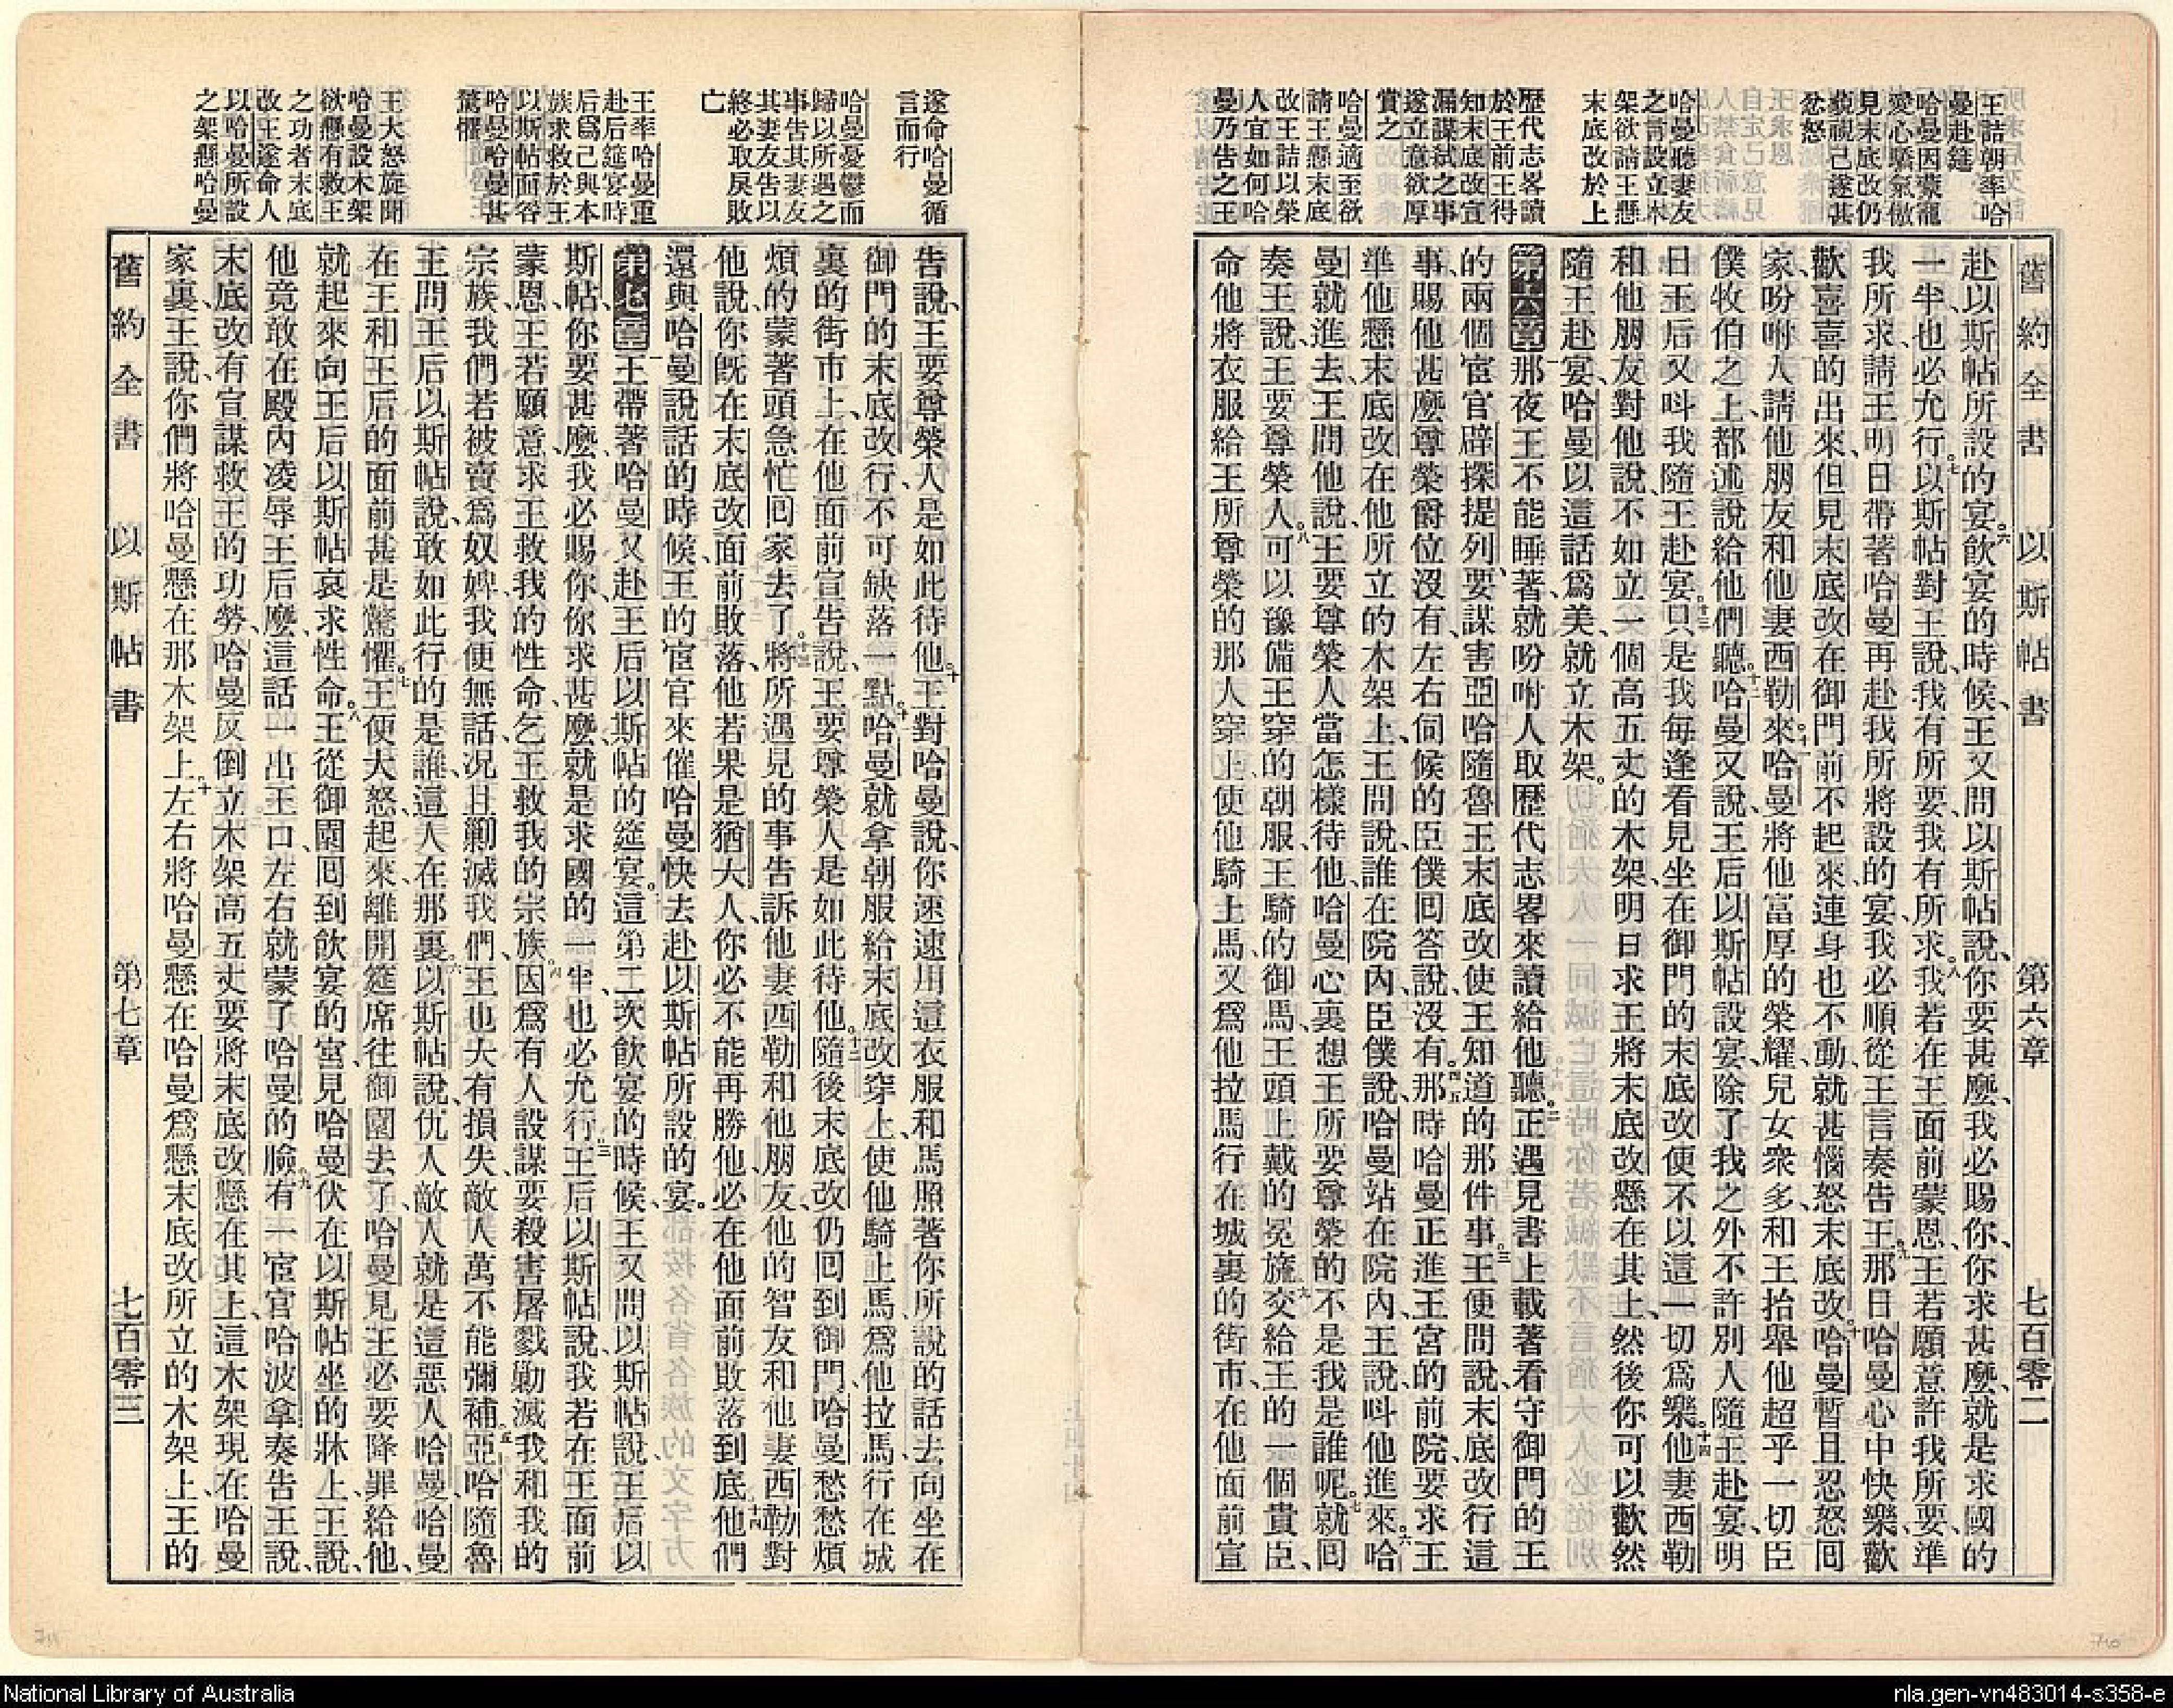 舊約全書　以斯帖書　第六章　七百零二
王詰朝率哈
曼赴筵
哈曼因蒙寵
愛心驕氣傲
見末底改仍
藐視己遂甚
忿怒
哈曼聽妻友
之言設立木
架欲請王懸
末底改於上
歷代志畧讀
於王前王得
知末底改宣
漏謀弑之事
遂立意欲厚
賞之
哈曼適至欲
請王懸末底
改王詰以榮
人宜如何哈
曼乃告之王
赴以斯帖所設的宴。六飲宴的時候、王又問以斯帖說、你要甚麼、我必賜你、你求甚麼、就是求國的
一半、也必允行。七以斯帖對王說、我有所要、我有所求。八我若在王面前蒙恩、王若願意許我所要、準
我所求、請王明日帶著哈曼再赴我所將設的宴、我必順從王言奏告王。九那日哈曼心中快樂、歡
歡喜喜的出來、但見末底改在御門前不起來、連身也不動、就甚惱怒末底改。十哈曼暫且忍怒囘
家、吩咐人請他朋友和他妻西勒來。十一哈曼將他富厚的榮耀、兒女衆多、和王抬舉他超乎一切臣
僕牧伯之上、都述說給他們聽。十二哈曼又說、王后以斯帖設宴、除了我之外、不許別人隨王赴宴、明
日王后又呌我隨王赴宴。十三只是我每逢看見坐在御門的末底改、便不以這一切爲樂。十四他妻西勒
和他朋友對他說、不如立一個高五丈的木架、明日求王將末底改懸在其上、然後你可以歡然
隨王赴宴、哈曼以這話爲美、就立木架。
第六章一那夜王不能睡著、就吩咐人取歷代志畧來讀給他聽。二正遇見書上載著看守御門的王
的兩個宦官辟探提列、要謀害亞哈隨魯王、末底改使王知道的那件事。三王便問說、末底改行這
事、賜他甚麼尊榮爵位沒有、左右伺候的臣僕囘答說、沒有。四五那時哈曼正進王宮的前院、要求王
準他懸末底改在他所立的木架上、王問說、誰在院內、臣僕說、哈曼站在院內、王說、呌他進來。六哈
曼就進去、王問他說、王要尊榮人、當怎樣待他、哈曼心裏想、王所要尊榮的不是我是誰呢。七就囘
奏王說、王要尊榮人。八可以豫備王穿的朝服、王騎的御馬、王頭上戴的冕旒。九交給王的一個貴臣、
命他將衣服給王所尊榮的那人穿上、使他騎上馬、又爲他拉馬行在城裏的街市、在他面前宣
遂命哈曼循
言而行
哈曼憂鬱而
歸以所遇之
事告其妻友
其妻友告以
終必取戾敗
亡
王率哈曼重
赴后筵宴時
后爲己與本
族求救於王
以斯帖面咎
哈曼哈曼甚
驚懼
王大怒旋聞
哈曼設木架
欲懸有救王
之功者末底
改王遂命人
以哈曼所設
之架懸哈曼
告說、王要尊榮人、是如此待他。十王對哈曼說、你速速用這衣服和馬、照著你所說的話、去向坐在
御門的末底改行、不可缺落一點。十一哈曼就拿朝服給末底改穿上、使他騎上馬、爲他拉馬行在城
裏的街市上、在他面前宣告說、王要尊榮人是如此待他。十二隨後末底改仍囘到御門、哈曼愁愁煩
煩的蒙著頭急忙囘家去了。十三將所遇見的事告訴他妻西勒和他朋友、他的智友和他妻西勒對
他說、你旣在末底改面前敗落、他若果是猶大人、你必不能再勝他、必在他面前敗落到底。十四他們
還與哈曼說話的時候、王的宦官來催哈曼快去赴以斯帖所設的宴。
第七章一王帶著哈曼又赴王后以斯帖的筵宴。二這第二次飲宴的時候、王又問以斯帖說、王后以
斯帖、你要甚麼、我必賜你、你求甚麼、就是求國的一半、也必允行。三王后以斯帖說、我若在王面前
蒙恩、王若願意、求王救我的性命、乞王救我的宗族。四因爲有人設謀、要殺害屠戮勦滅我和我的
宗族、我們若被賣爲奴婢、我便無話、況且勦滅我們、王也大有損失、敵人萬不能彌補。五亞哈隨魯
王問王后以斯帖說、敢如此行的是誰、這人在那裏。六以斯帖說、仇人敵人就是這惡人哈曼、哈曼
在王和王后的面前、甚是驚懼。七王便大怒、起來離開筵席往御園去了、哈曼見王必要降罪給他、
就起來向王后以斯帖哀求性命。八王從御園囘到飲宴的宮、見哈曼伏在以斯帖坐的牀上、王說、
他竟敢在殿內凌辱王后麼、這話一出王口、左右就蒙了哈曼的臉。九有一宦官哈波拿奏告王說、
末底改有宣謀救王的功勞、哈曼反倒立木架高五丈、要將末底改懸在其上、這木架現在哈曼
家裏、王說、你們將哈曼懸在那木架上。十左右將哈曼懸在哈曼爲懸末底改所立的木架上、王的
舊約全書　以斯帖書　第七章　七百零三
National Library of Australia
nla.gen-vn483014-s358-e